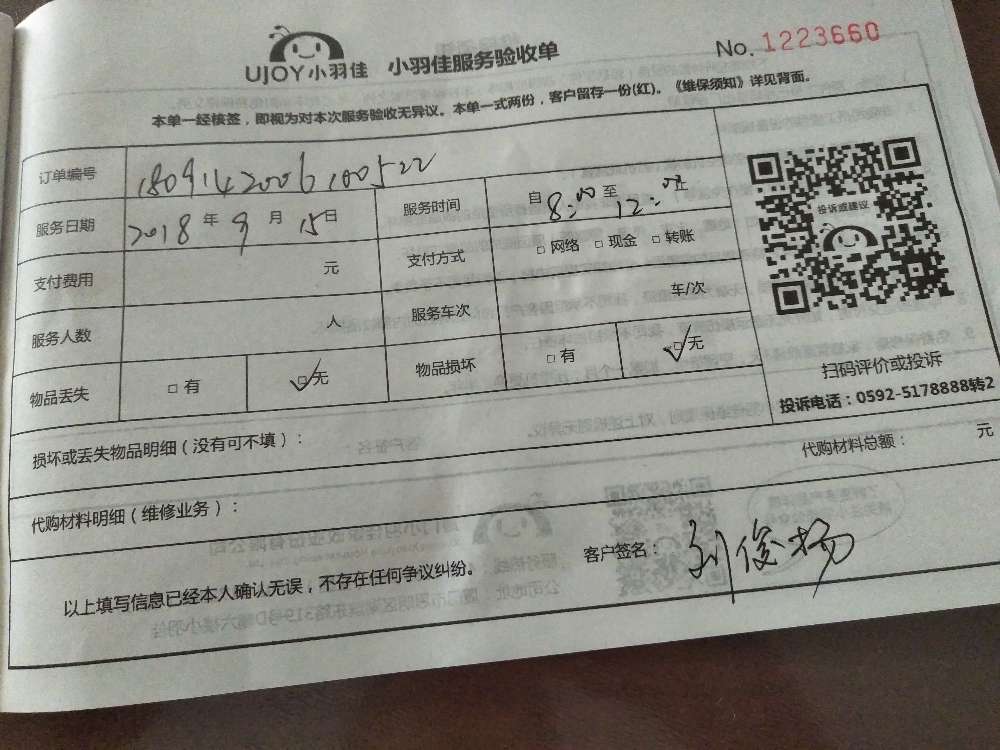 UJOY小羽佳 小羽佳服务验收单 No. 1223660
本单一经核签，即视为对本次服务验收无异议。本单一式两份，客户留存一份(红)。《维保须知》详见背面。
订单编号 1809142006100522
服务日期 2018 年 9 月 15 日 服务时间 自 8:00 至 12:00 止
支付费用 元 支付方式 □ 网络 □ 现金 □ 转账
服务人数 人 服务车次 车/次
物品丢失 □ 有 ☑无 物品损坏 □ 有 ☑无
投诉或建议
扫码评价或投诉
投诉电话：0592-5178888转2
损坏或丢失物品明细（没有可不填）：
代购材料明细（维修业务）： 代购材料总额： 元
以上填写信息已经本人确认无误，不存在任何争议纠纷。 客户签名： 刘俊杨